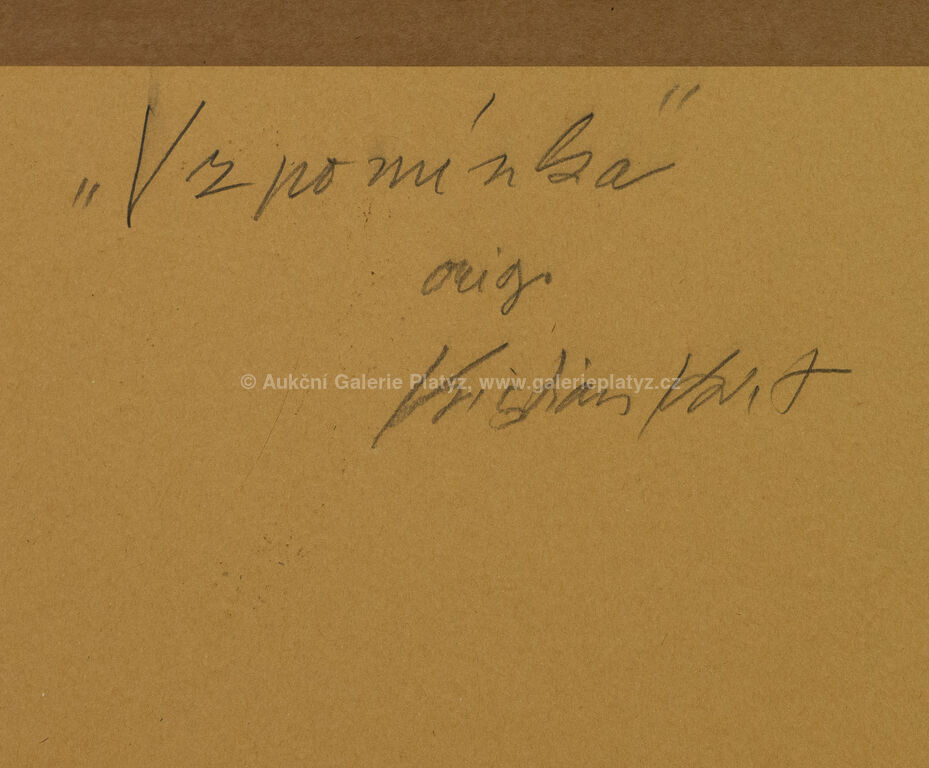 „Vzpomínka"
orig.
© Aukční Galerie Platýz, www.galerieplatyz.cz
Kristian Kodet